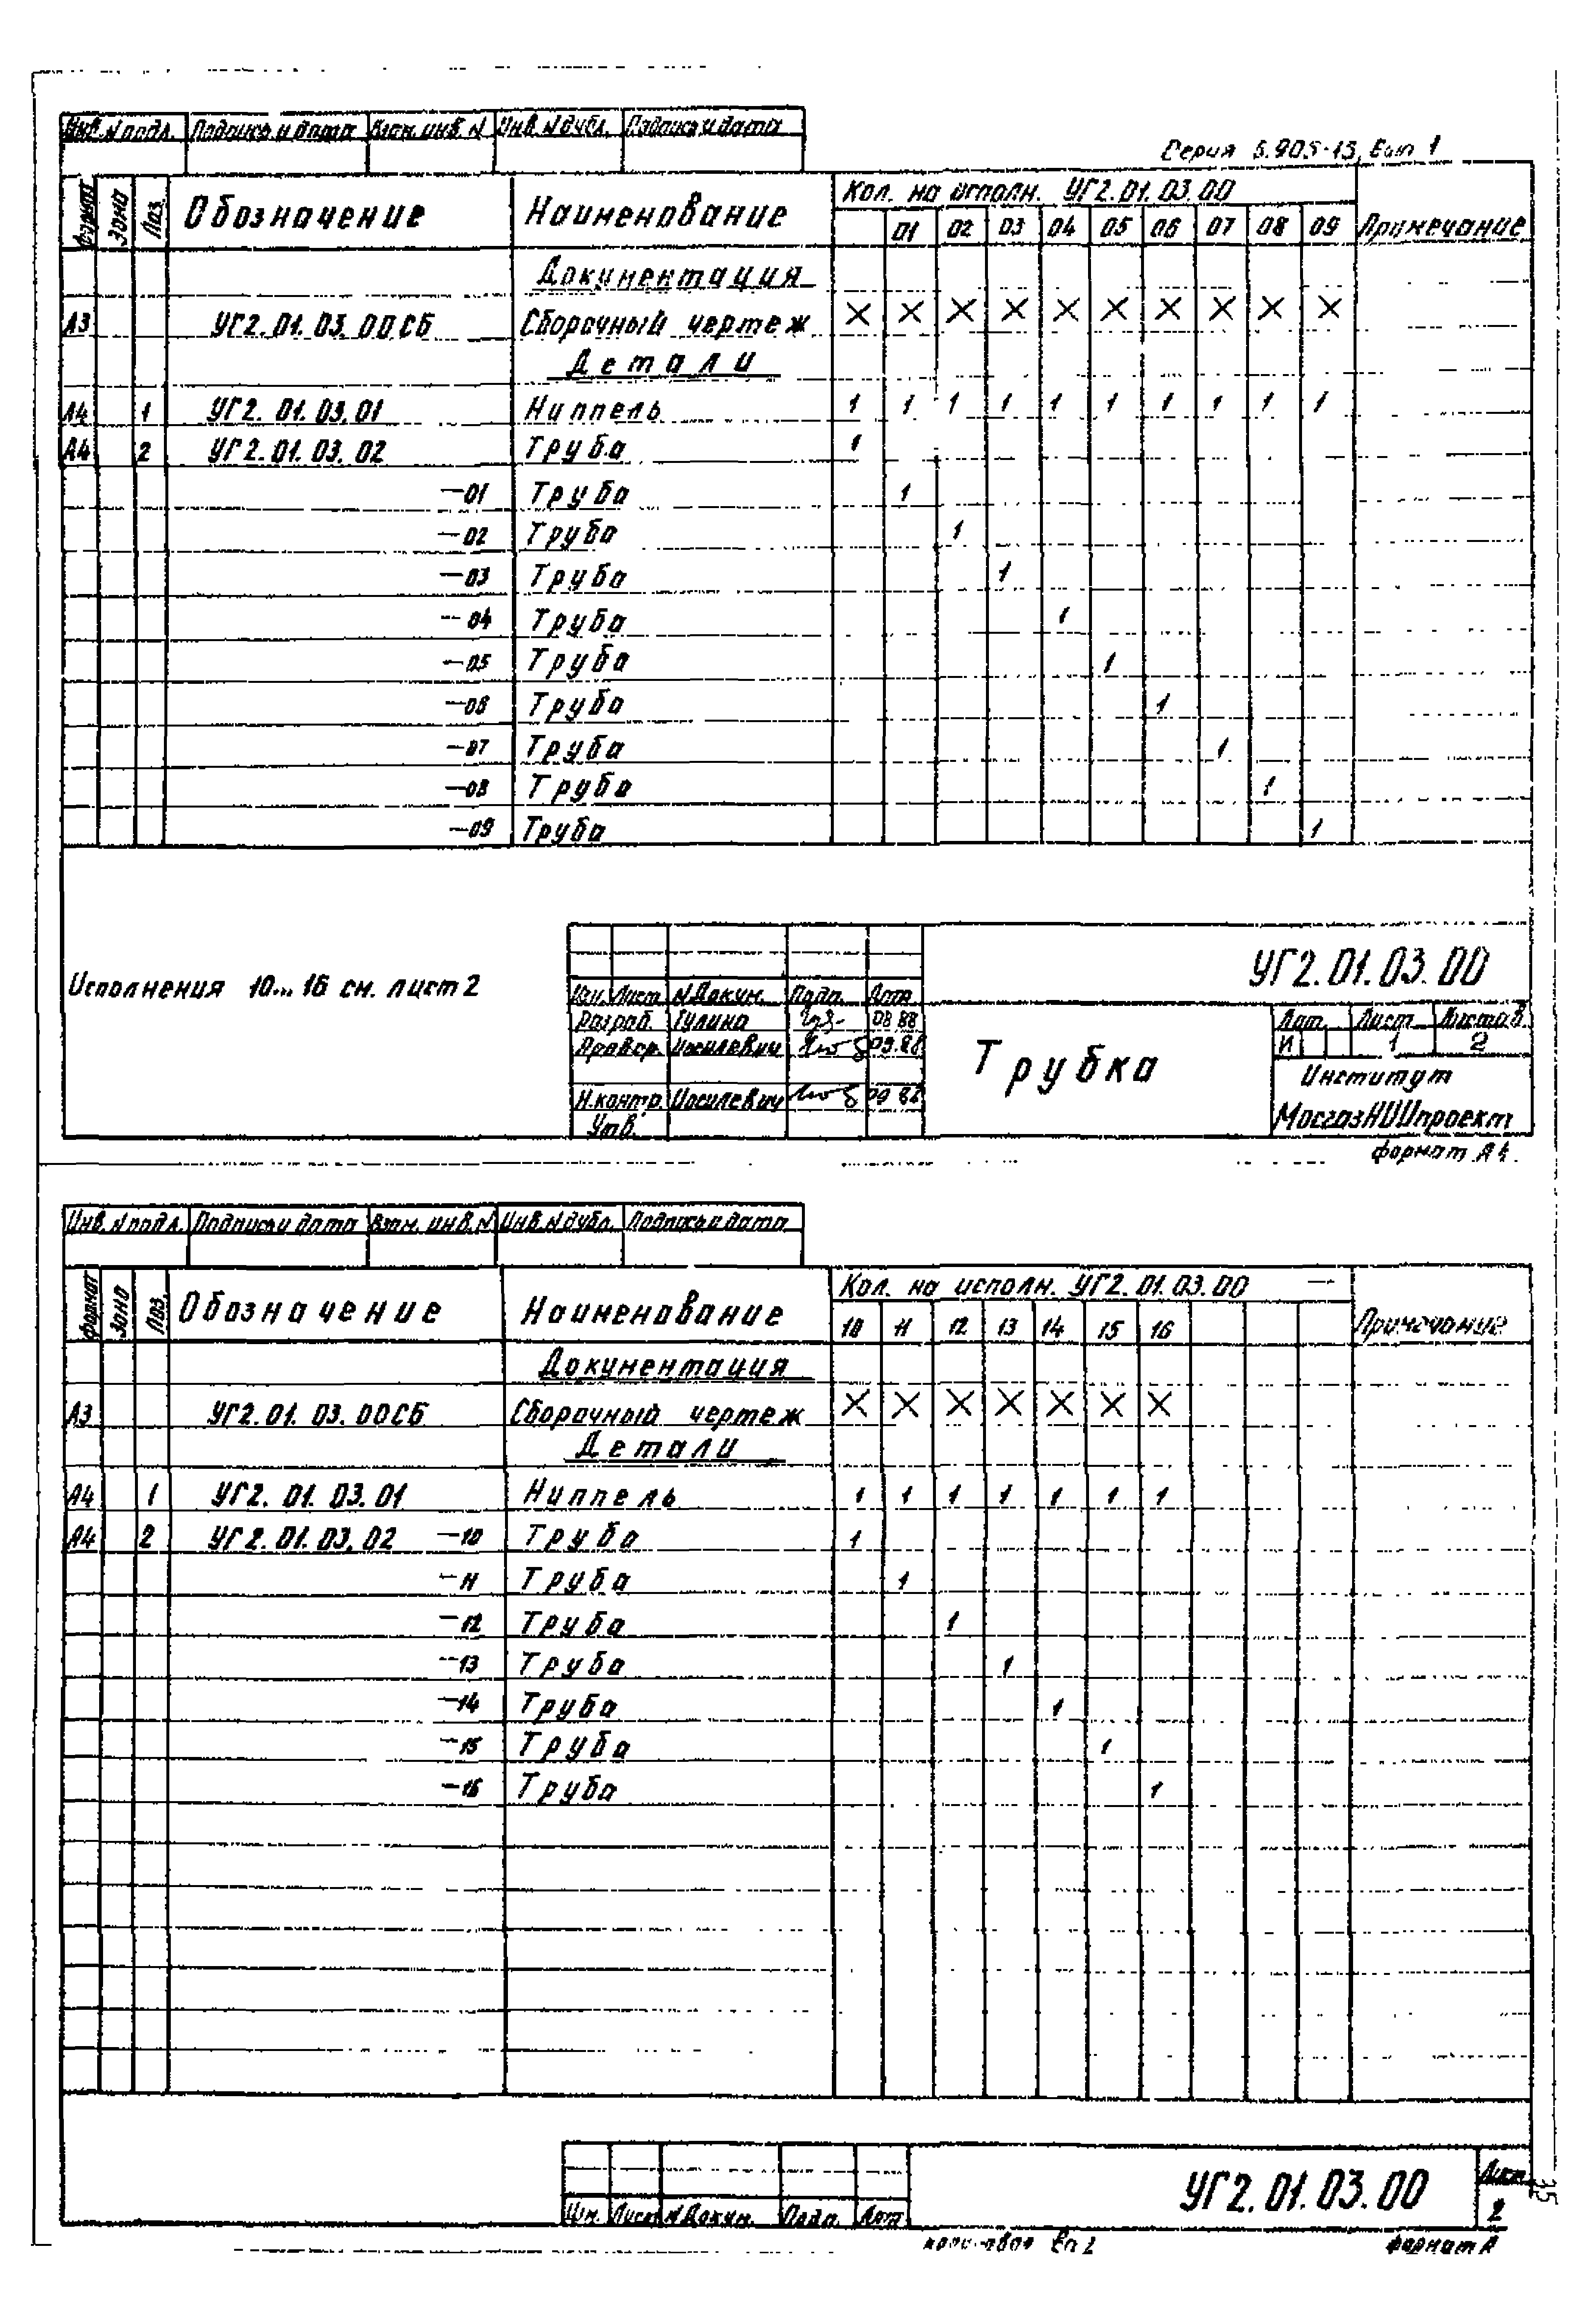 Инв. N подл. Подпись и дата Взам. инв. N Инв. N дубл. Подпись и дата
Серия 5.905-15, Вып 1
Формат Зона Поз. Обозначение Наименование Кол. на исполн. УГ2.01.03.00 Примечание
01 02 03 04 05 06 07 08 09
Документация
А3 УГ2.01.03.00СБ Сборочный чертеж X X X X X X X X X X
Детали
А4 1 УГ2.01.03.01 Ниппель 1 1 1 1 1 1 1 1 1 1
А4 2 УГ2.01.03.02 Труба 1
—01 Труба 1
—02 Труба 1
—03 Труба 1
—04 Труба 1
—05 Труба 1
—06 Труба 1
—07 Труба 1
—08 Труба 1
—09 Труба 1
Исполнения 10...16 см. лист 2
УГ2.01.03.00
Изм. Лист N Докум. Подп. Дата
Разраб. Гулина 08 88
Провер. Иосилевич 09.88
Н.контр. Иосилевич 09 88
Утв.
Трубка
Лит. Лист Листов
И 1 2
Институт
МосгазНИИпроект
формат А4
Инв. N подл. Подпись и дата Взам. инв. N Инв. N дубл. Подпись и дата
Формат Зона Поз. Обозначение Наименование Кол. на исполн. УГ2.01.03.00 — Примечание
10 11 12 13 14 15 16
Документация
А3 УГ2.01.03.00СБ Сборочный чертеж X X X X X X X
Детали
А4 1 УГ2.01.03.01 Ниппель 1 1 1 1 1 1 1
А4 2 УГ2.01.03.02 —10 Труба 1
—11 Труба 1
—12 Труба 1
—13 Труба 1
—14 Труба 1
—15 Труба 1
—16 Труба 1
УГ2.01.03.00
Лист
2
Изм. Лист N Докум. Подп. Дат
формат А
35